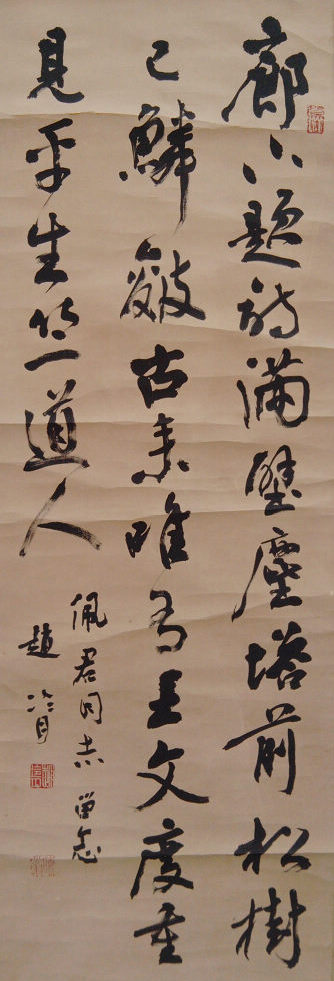 廊下題詩滿壁塵塔前松樹
已鱗皴古來唯有王文度重
見平生竺道人
佩君同志留念
趙冷月